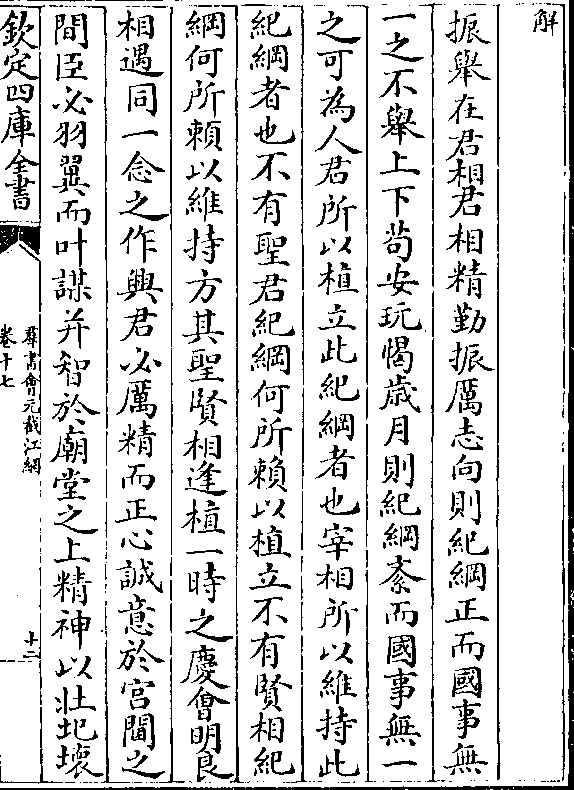 解
振舉在君相君相精勤振厲志向則紀綱正而國事無
一之不舉上下苟安玩愒歲月則紀綱紊而國事無一
之可為人君所以植立此紀綱者也宰相所以維持此
紀綱者也不有聖君紀綱何所賴以植立不有賢相紀
綱何所賴以維持方其聖賢相逢植一時之慶會明良
相遇同一念之作興君必厲精而正心誠意於宮闈之
間臣必羽翼而叶謀并智於廟堂之上精神以壯圯壞
欽定四庫全書
羣書會元截江網
卷十七
十二